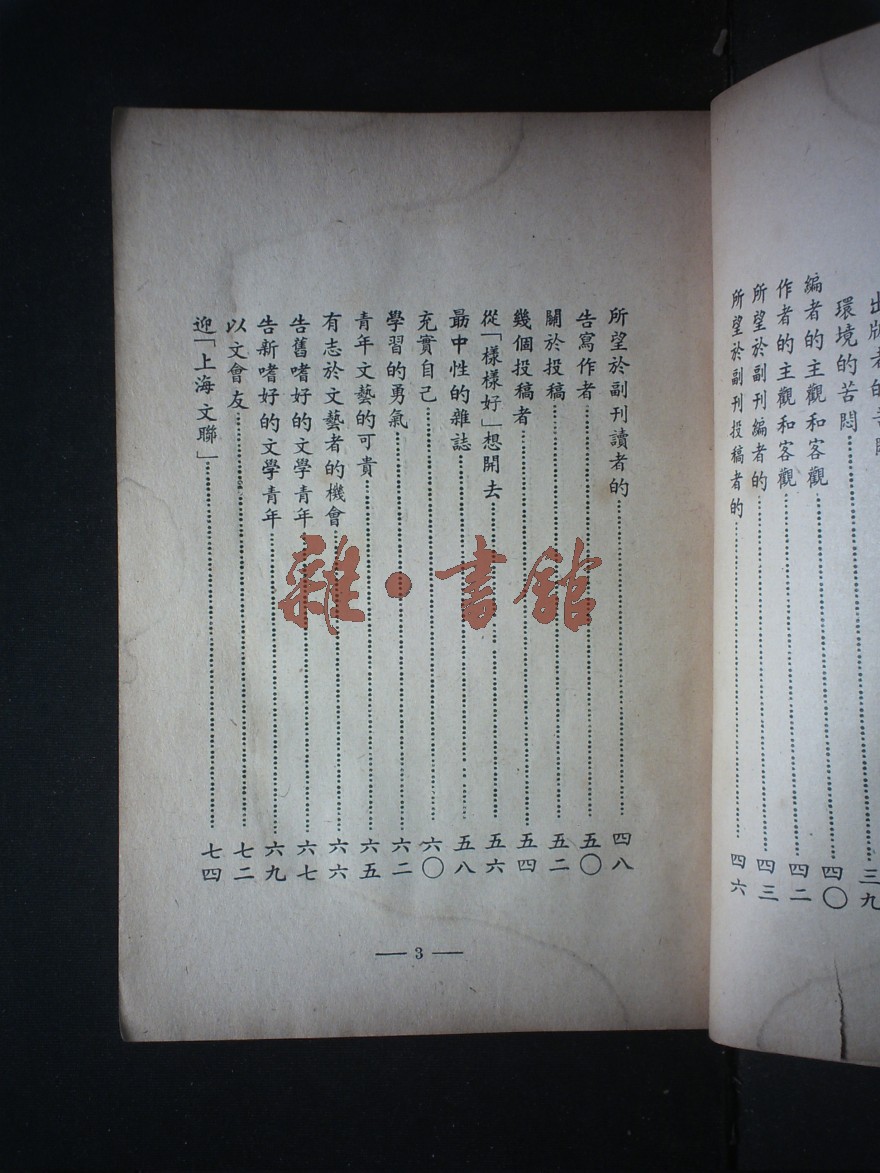 環境的苦悶………四〇
編者的主觀和客觀………四二
作者的主觀和客觀………四三
所望於副刊編者的………
所望於副刊投稿者的………四六
所望於副刊讀者的………四八
告寫作者………五〇
關於投稿………五二
幾個投稿者………五四
從「樣樣好」想開去………五六
最中性的雜誌………五八
充實自己………六〇
學習的勇氣………六二
青年文藝的可貴………六五
有志於文藝者的機會………六六
告舊嗜好的文學青年………六七
告新嗜好的文學青年………六九
以文會友………七二
迎「上海文聯」………七四
— 3 —
雜·書館